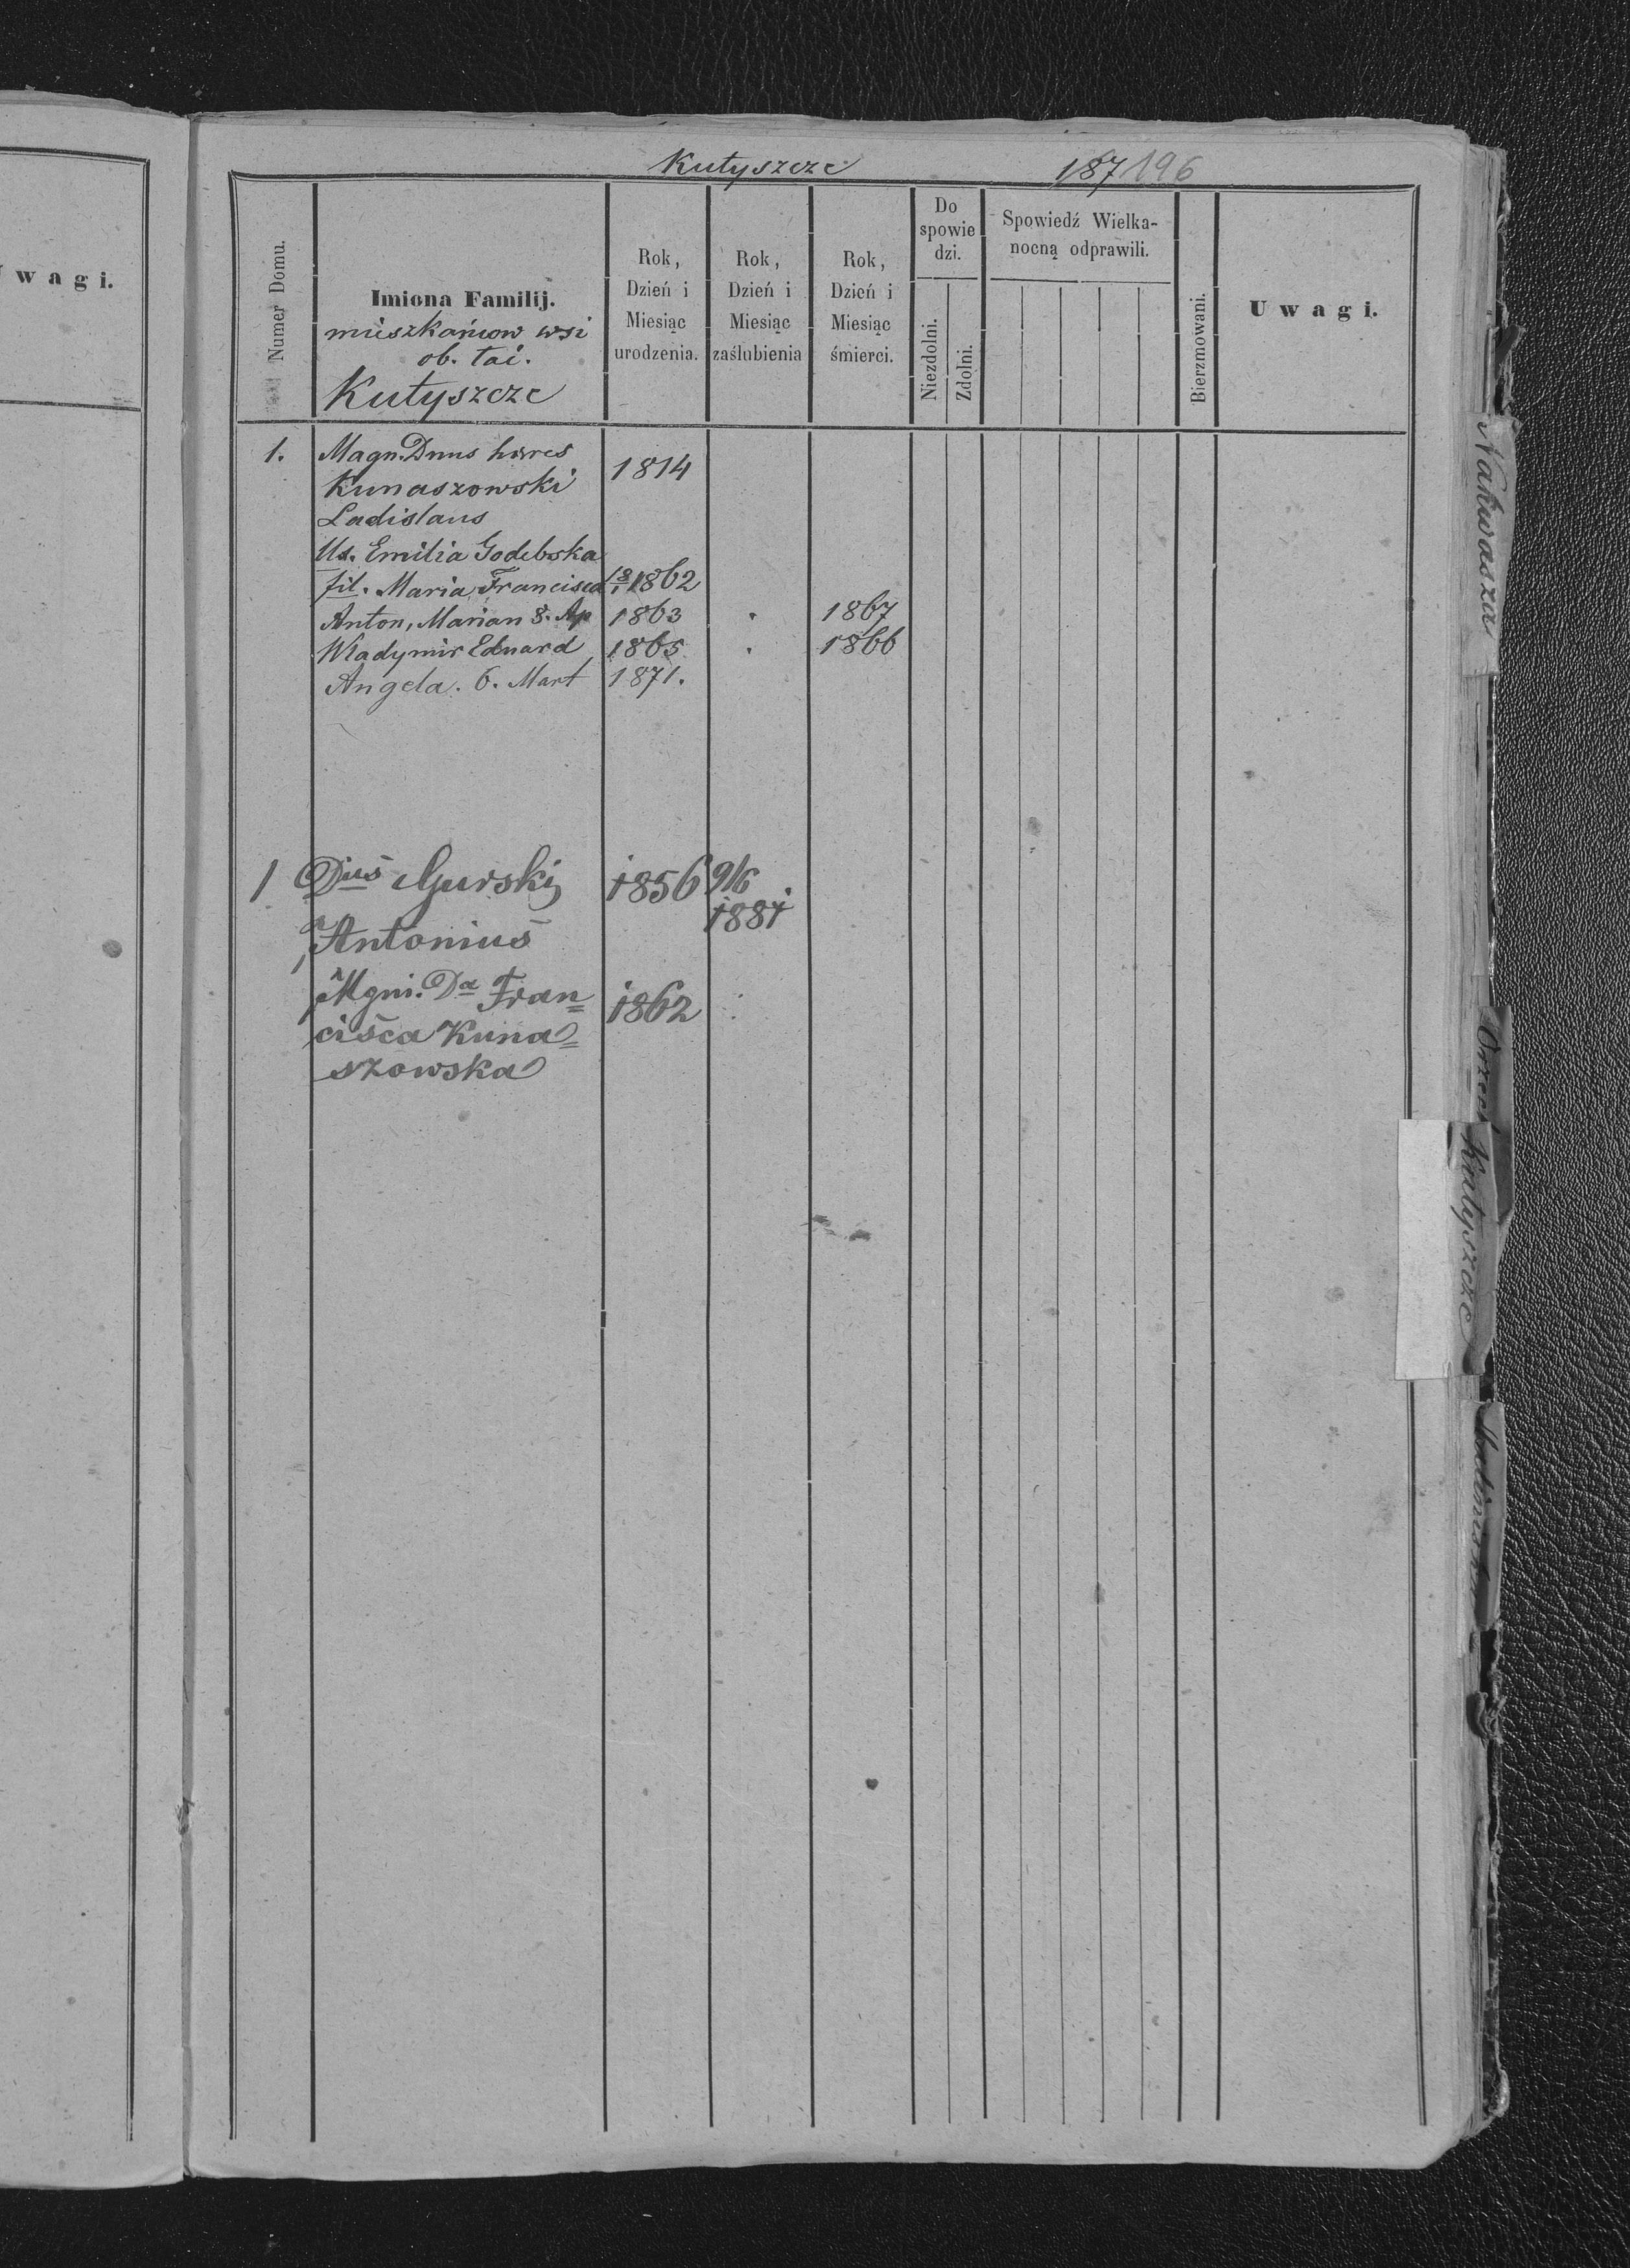 Kutyszcze 187 196
Uwagi.
Numer Domu.
Imiona Familij.
mieszkańcow wsi
ob. łać.
Kutyszcze
Rok,
Dzień i
Miesiąc
urodzenia.
Rok,
Dzień i
Miesiąc
zaślubienia
Rok,
Dzień i
Miesiąc
śmierci.
Do
spowie
dzi.
Niezdolni.
Zdolni.
Spowiedź Wielka-
nocną odprawili.
Bierzmowani.
Uwagi.
1. Magn. Dnus hæres
Kunaszowski 1814
Ladislaus
Us. Emilia Godebska
fil. Maria Francisca 1862
Anton, Marian 8. Ap 1863 . 1867
Wladymir Eduard 1865 . 1866
Angela. 6. Mart 1871.
1 Dus Gurski 1856 9/6
1881
Antonius
Mgni. Da Fran= 1862
cisca Kuna=
szowska
Nakwasza
Kutyszcze